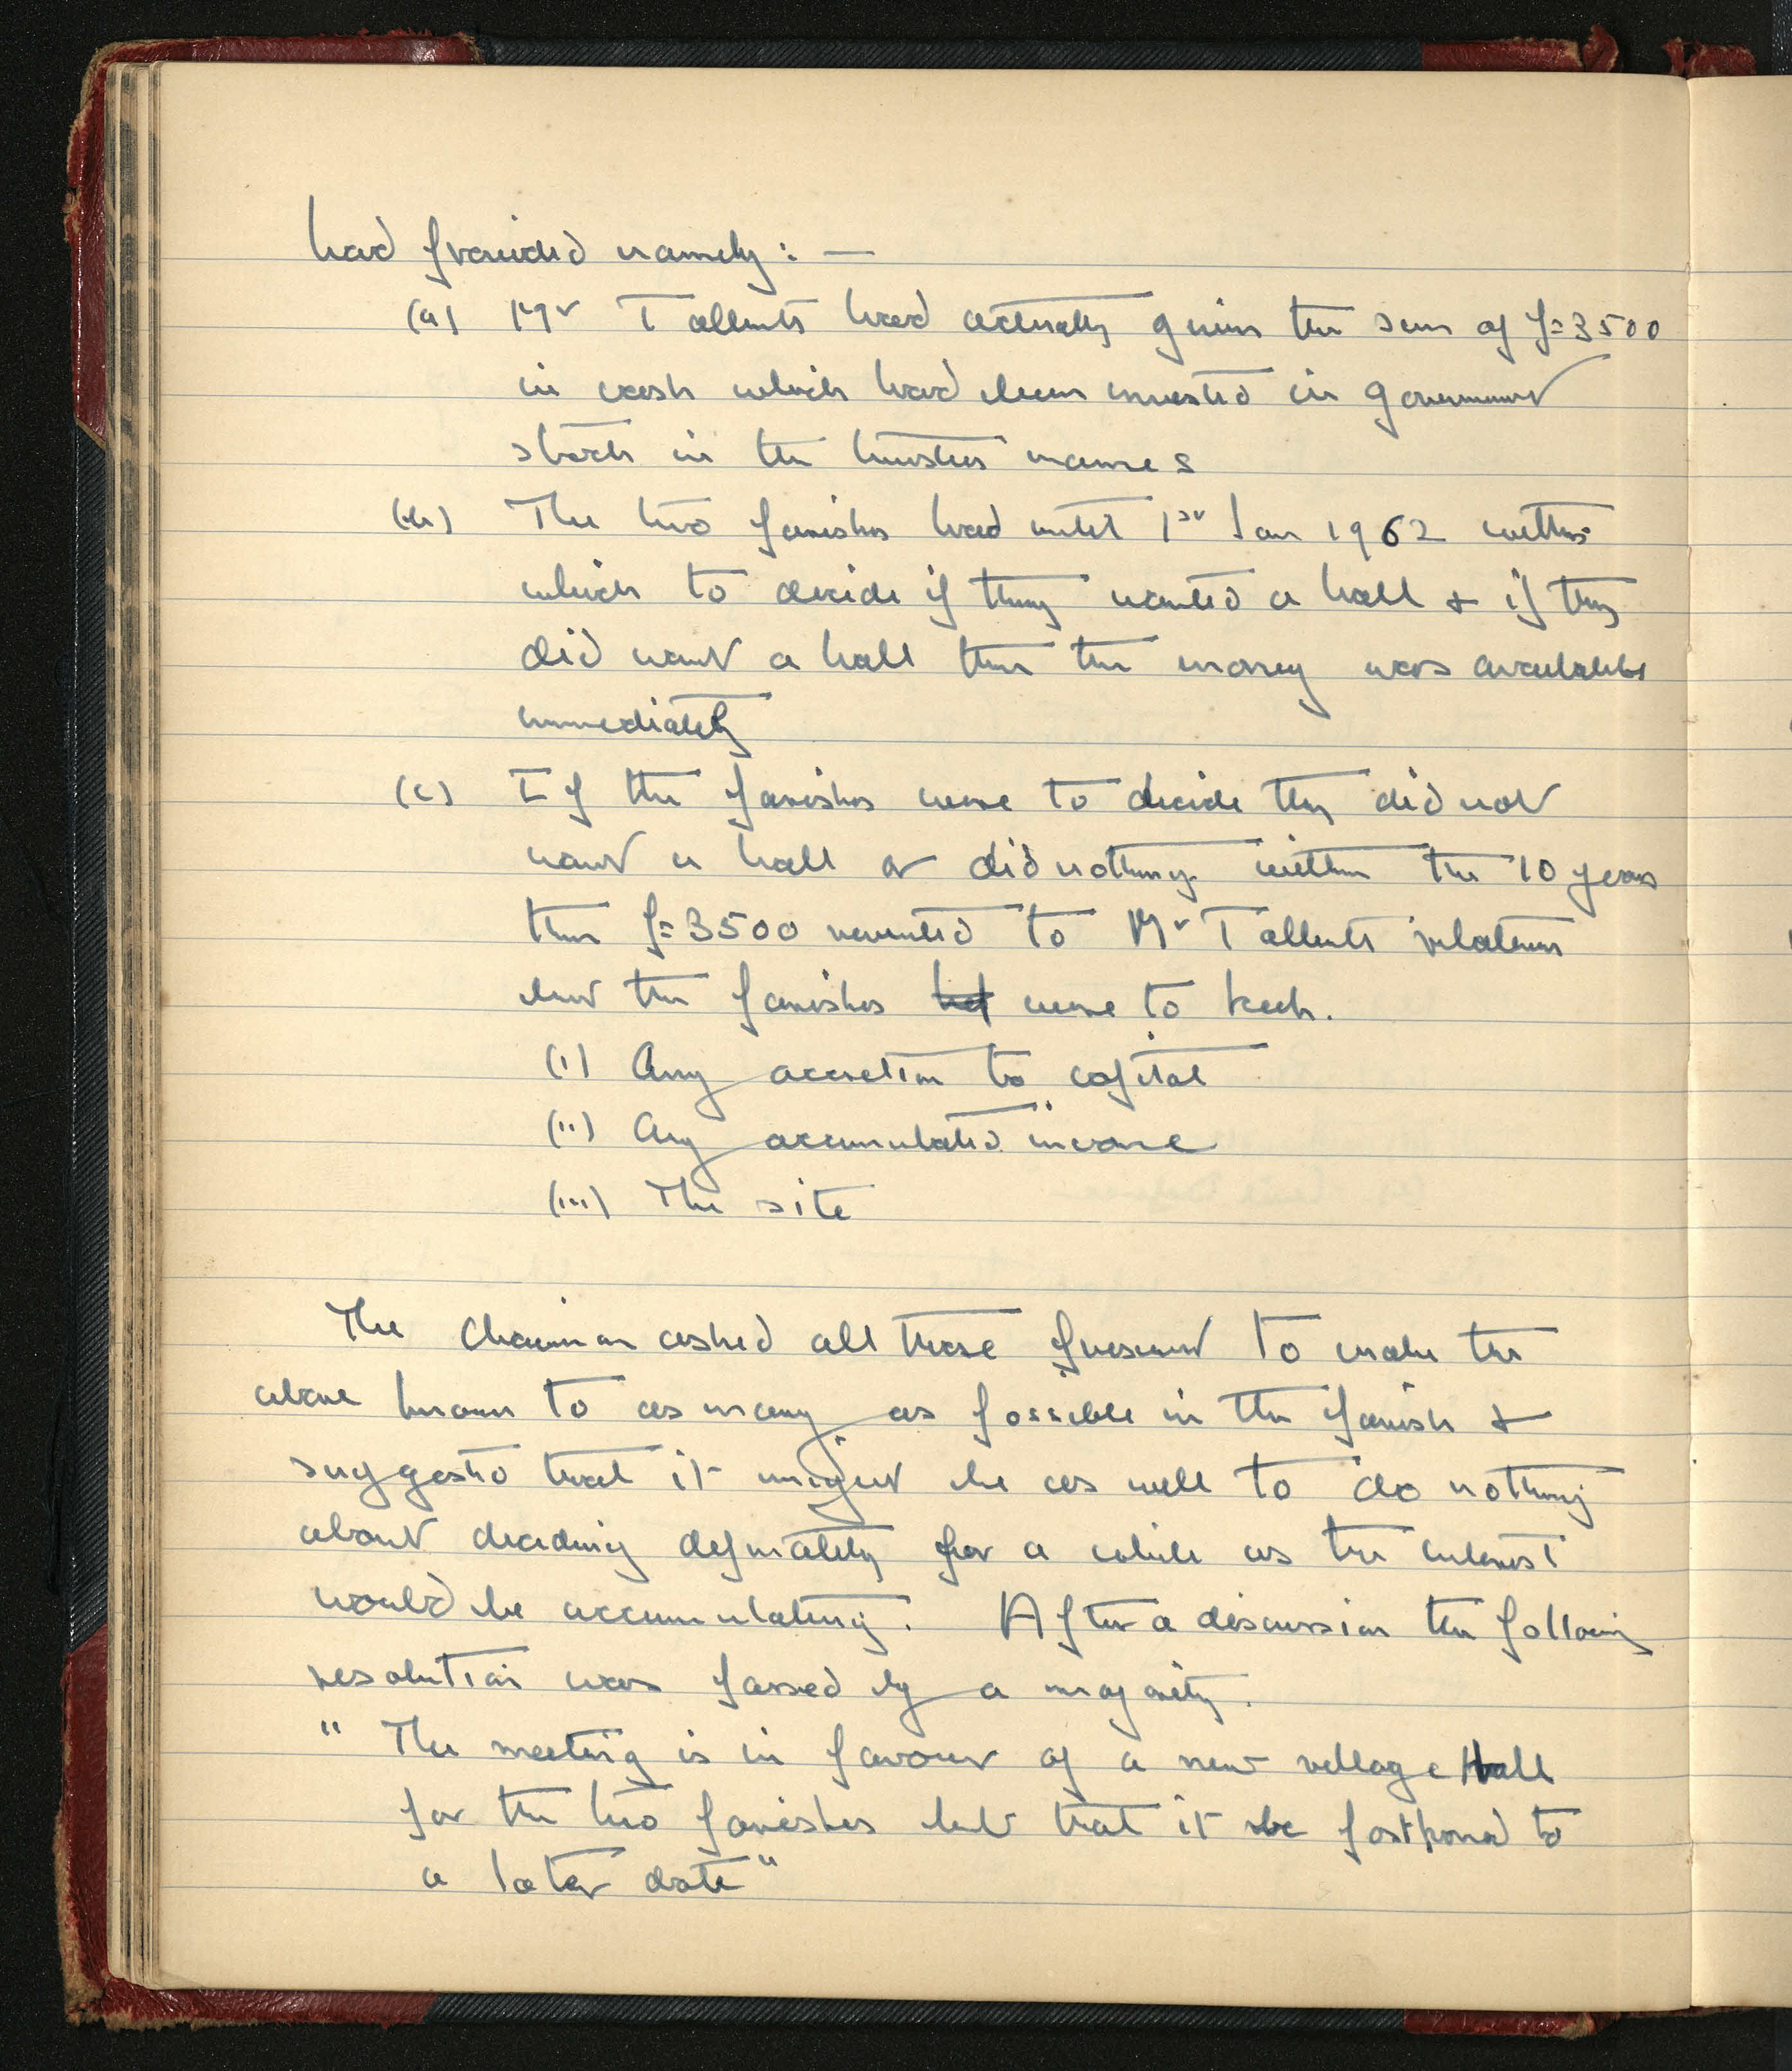 had provided namely : —
(a) Mr Tallents had actually given the sum of £3500
in cash which had been invested in government
stock in the trustees names
(b) The two parishes had until 1st Jan 1962 within
which to decide if they wanted a hall & if they
did want a hall then the money was available
immediately
(c) If the parishes were to decide they did not
want a hall or did nothing within the 10 years
then £3500 reverted to Mr Tallents relatives
but the parishes were to keep.
(i) Any accretion to capital
(ii) Any accumulated income
(iii) The site
The Chairman asked all those present to make the
above known to as many as possible in the parish &
suggested that it might be as well to do nothing
about deciding definately for a while as the interest
would be accumulating. After a discussion the following
resolution was passed by a majority.
" The meeting is in favour of a new village Hall
for the two parishes but that it be postponed to
a later date "